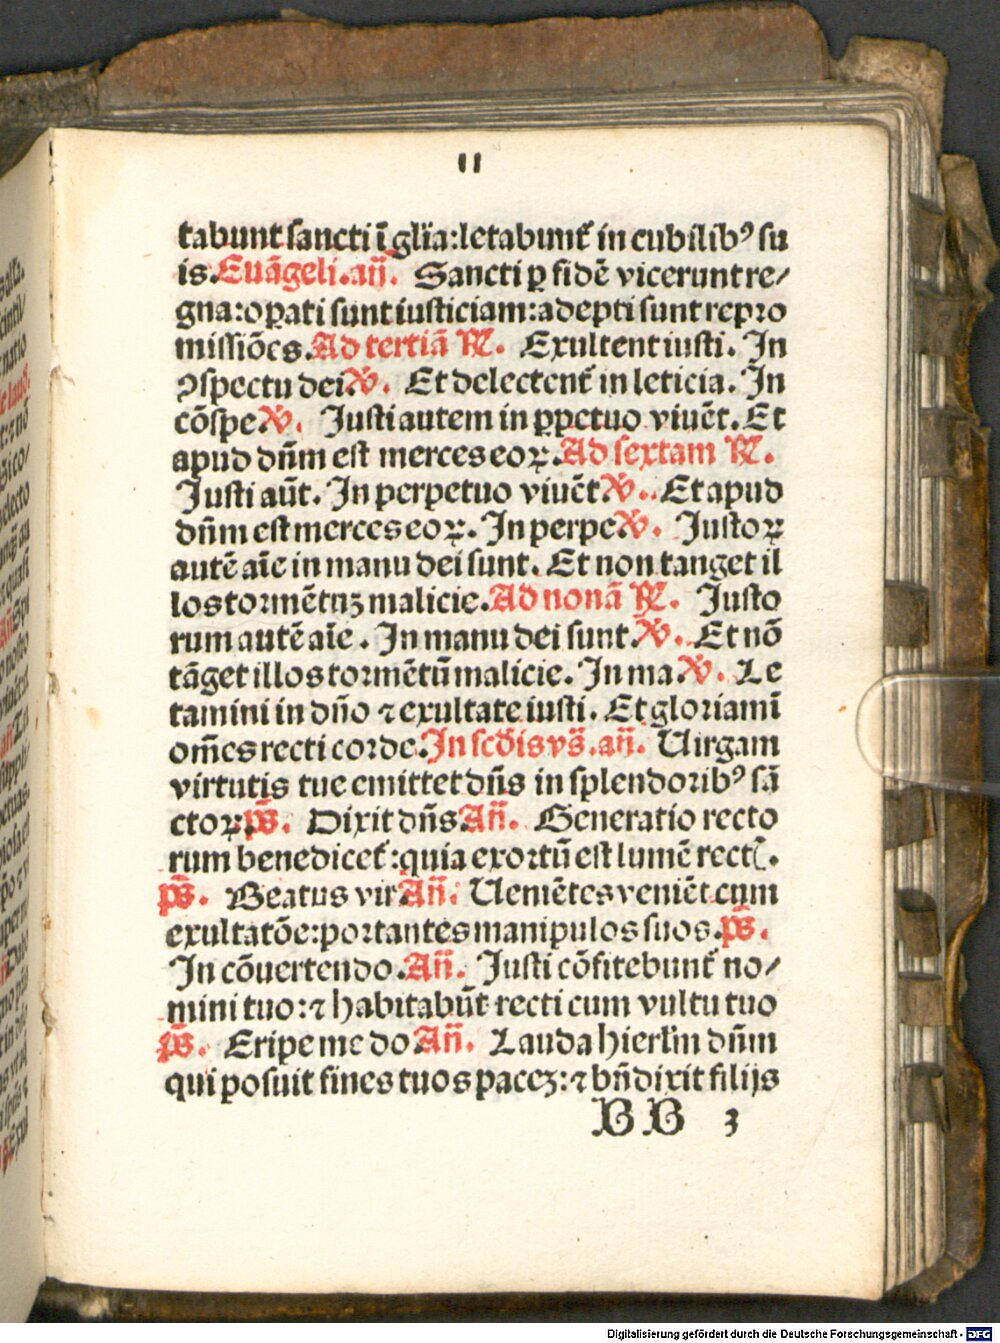 11
tabunt sancti ī glīa:letabunt᷑ in cubilibꝰ su
is.Euāgeli.an̄. Sancti ꝑ fidē vicerunt re/
gna:oꝑati sunt iusticiam:adepti sunt repro
missiōes.Ad tertiā ℞. Exultent iusti. In
ↄspectu dei℣. Et delectent᷑ in leticia. In
cōspe℣. Iusti autem in ꝑpetuo viuēt. Et
apud dn̄m est merces eoꝝ.Ad sextam ℞.
Iusti aūt. In perpetuo viuēt℣.. Et apud
dn̄m est merces eoꝝ. In perpe℣. Iustoꝝ
autē aīe in manu dei sunt. Et non tanget il
los tormētuꝫ malicie.Ad nonā ℞. Iusto
rum autē aīe. In manu dei sunt.℣.. Et nō
tāget illos tormētū malicie. In ma℣. Le
tamini in dn̄o ⁊ exultate iusti. Et gloriamī
om̄es recti corde.In scd̄is vs̄.an̄. Uirgam
virtutis tue emittet dn̄s in splendoribꝰ sā
ctoꝝ.p̄s. Dixit dn̄sAn̄. Generatio recto
rum benedicet᷑:quia exortū est lumē rectꝭ.
p̄s. Beatus virAn̄. Uenietēs veniēt cum
exultatōe:portantes manipulos suos.p̄s.
In cōuertendo.An̄. Iusti cōfitebunt᷑ no/
mini tuo:⁊ habitabūt recti cum vultu tuo
p̄s. Eripe me doAn̄. Lauda hierlm̄ dn̄m
qui posuit fines tuos paceꝫ:⁊ bn̄dixit filijs
BB 3
Digitalisierung gefördert durch die Deutsche Forschungsgemeinschaft - DFG